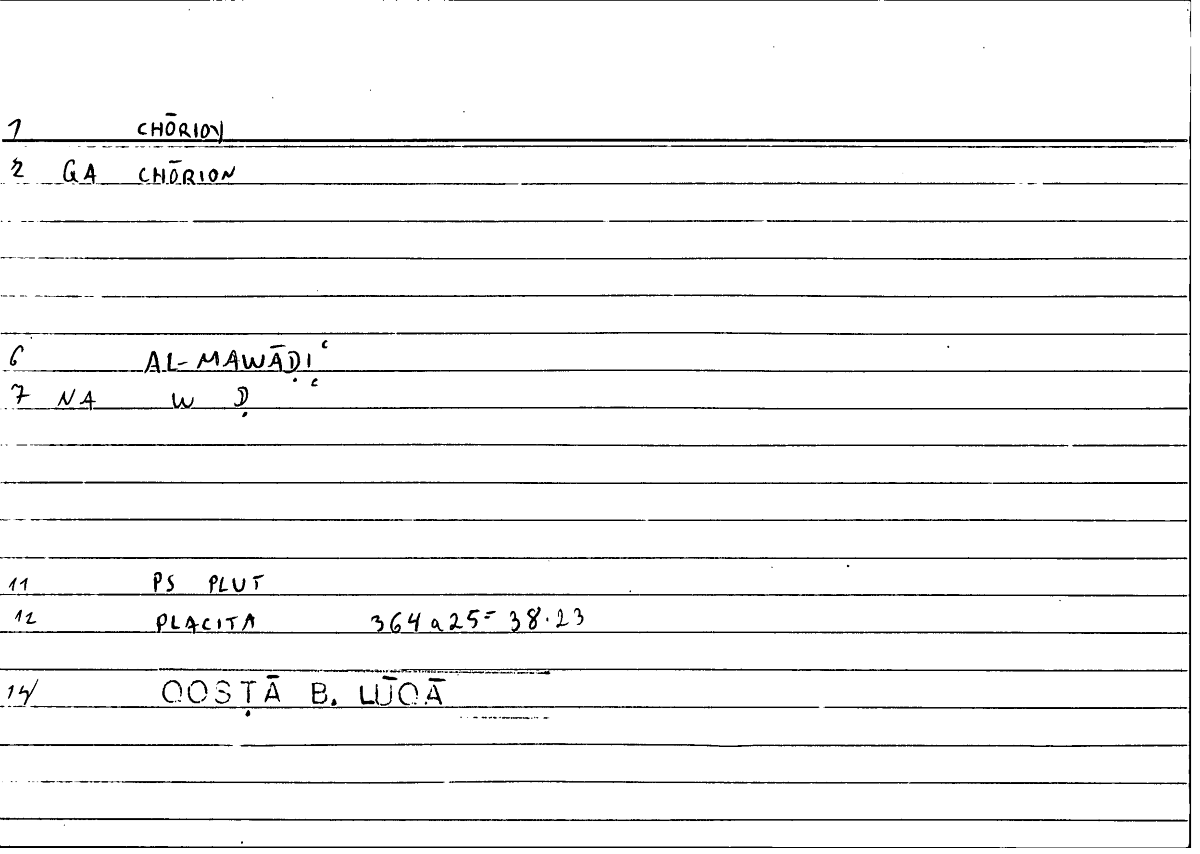 1 CHŌRION
2 GA CHŌRION
6 AL-MAWĀḌIʿ
7 NA W Ḍ ʿ
11 PS PLUT
12 PLACITA 364a25= 38.23
14/ QOSṬĀ B. LŪQĀ